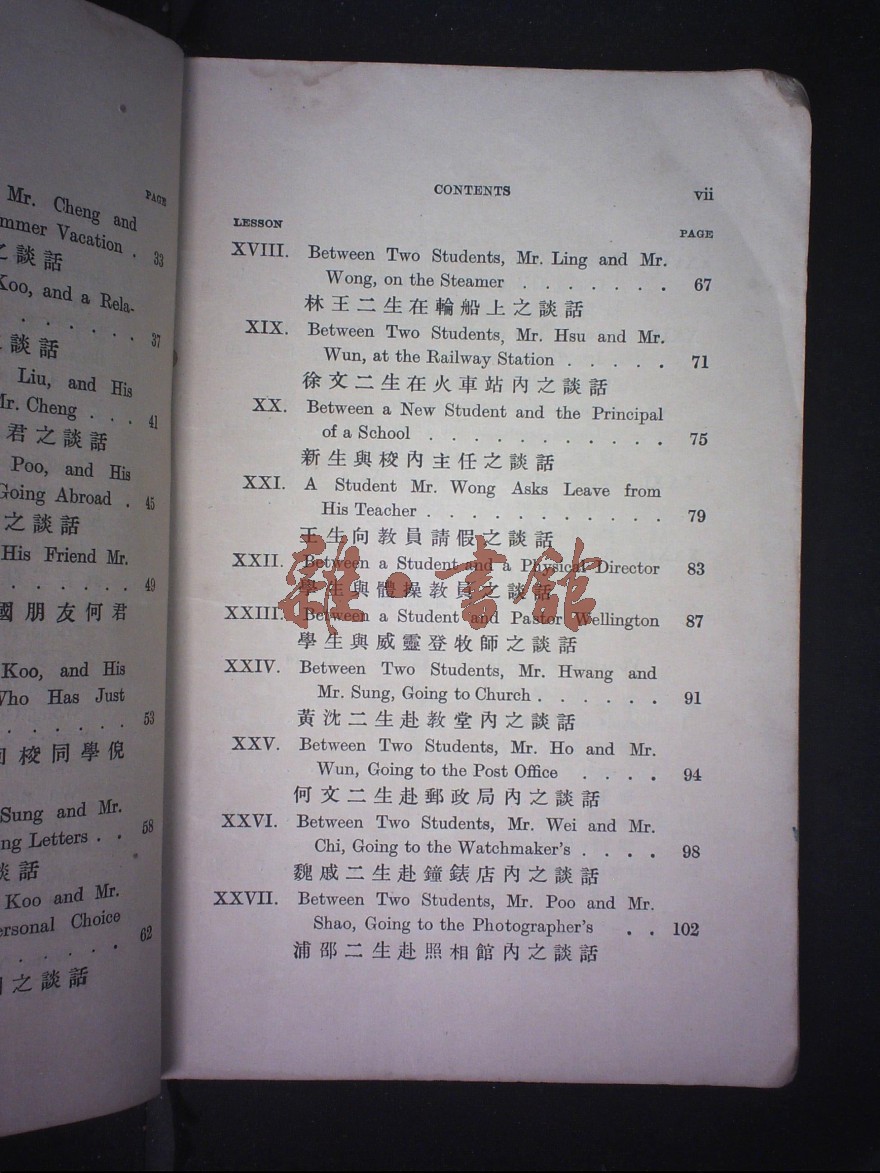 PAGE
Mr. Cheng and
Vacation . 33
之談話
Koo, and a Rela-
. . . . . . 37
談話
Liu, and His
Mr. Cheng . . . 41
君之談話
Poo, and His
Going Abroad . 45
之談話
His Friend Mr.
. . . . . . . 49
國朋友何君
Koo, and His
Who Has Just
. . . . . . . 53
校同學倪
Sung and Mr.
Letters . . 58
談話
Koo and Mr.
Choice
. . . . . . 62
之談話
CONTENTS vii
LESSON PAGE
XVIII. Between Two Students, Mr. Ling and Mr.
Wong, on the Steamer . . . . . . . 67
林王二生在輪船上之談話
XIX. Between Two Students, Mr. Hsu and Mr.
Wun, at the Railway Station . . . . . 71
徐文二生在火車站內之談話
XX. Between a New Student and the Principal
of a School . . . . . . . . . . . 75
新生與校內主任之談話
XXI. A Student Mr. Wong Asks Leave from
His Teacher . . . . . . . . . . . 79
王生向教員請假之談話
XXII. Between a Student and a Physical Director 83
學生與體操教員之談話
XXIII. Between a Student and Pastor Wellington 87
學生與威靈登牧師之談話
XXIV. Between Two Students, Mr. Hwang and
Mr. Sung, Going to Church . . . . . . 91
黃沈二生赴教堂內之談話
XXV. Between Two Students, Mr. Ho and Mr.
Wun, Going to the Post Office . . . . 94
何文二生赴郵政局內之談話
XXVI. Between Two Students, Mr. Wei and Mr.
Chi, Going to the Watchmaker's . . . . 98
魏戚二生赴鐘錶店內之談話
XXVII. Between Two Students, Mr. Poo and Mr.
Shao, Going to the Photographer's . . 102
浦邵二生赴照相館內之談話
雜·書館